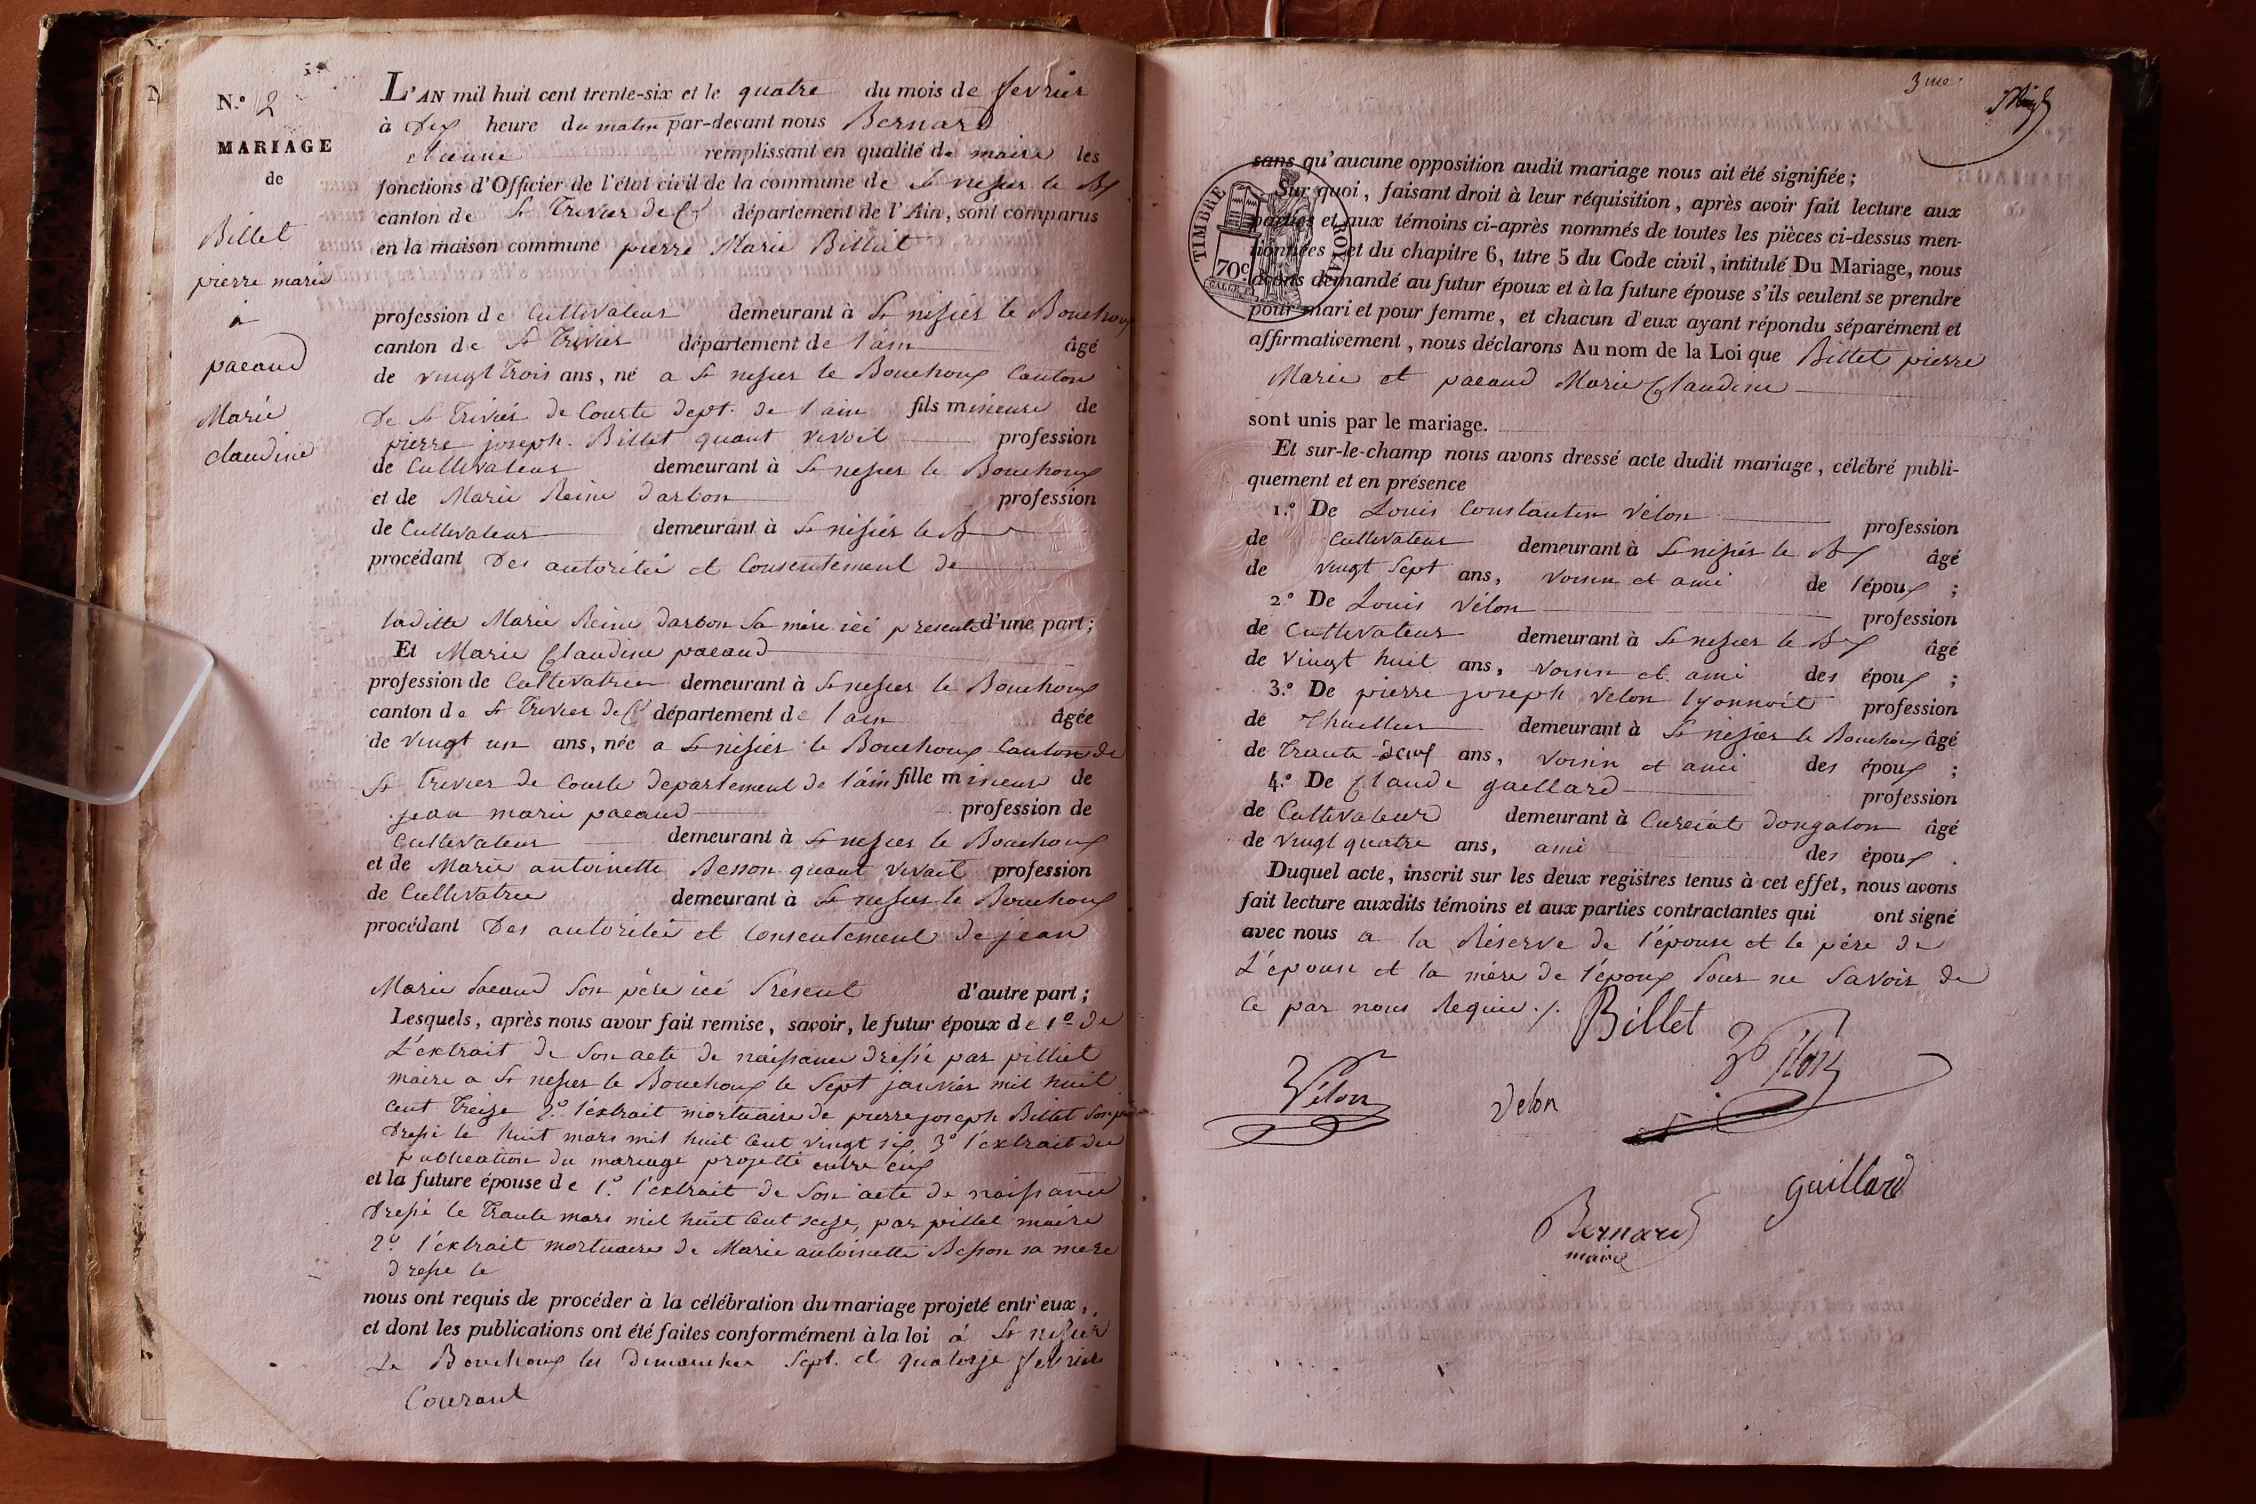 N.° 2
MARIAGE
de
Billet
pierre marie
à
pacaud
Marie
claudine
L'AN mil huit cent trente-six et le quatre du mois de fevrier
à Dix heure du matin par-devant nous Bernard
etienne remplissant en qualité de maire les
fonctions d'Officier de l'état civil de la commune de St nisier le Bx
canton de St Trivier de Ct département de l'Ain, sont comparus
en la maison commune pierre Marie Billet
profession de Cultivateur demeurant à St nisier le Bouchoux
canton de St Trivier département de l'ain âgé
de vingt trois ans, né a St nisier le Bouchoux Canton
De St Trivier de Courte dept. de l'ain fils mineure de
pierre joseph Billet quant vivoit profession
de Cultivateur demeurant à St nisier le Bouchoux
et de Marie Reine darbon profession
de Cultivateur demeurant à St nisier le B
procédant Des autoritée et Consentement de
laditte Marie Reine darbon sa mère ici presente d'une part;
Et Marie Claudine pacaud
profession de Cultivatrice demeurant à St nisier le Bouchoux
canton de St Trivier de Ct département de l'ain âgée
de vingt un ans, née a St nisier le Bouchoux Canton de
St Trivier de Courte departement de l'ain fille mineur de
jean marie pacaud profession de
Cultivateur demeurant à St nisier le Bouchoux
et de Marie antoinette Besson quant vivait profession
de Cultivatrice demeurant à St nisier le Bouchoux
procédant Des autoritée et Consentement de jean
Marie Pacaud Son père ici Présent d'autre part;
Lesquels, après nous avoir fait remise, savoir, le futur époux de 1° de
L'extrait de Son acte de naissance dressé par pilliet
maire a St nisier le Bouchoux le Sept janvier mil huit
cent treize 2° l'extrait mortuaire de pierre joseph Billet Son père
Dressé le huit mars mil huit Cent vingt six 3° l'extrait de
publication du mariage projetté entre eux
et la future épouse de 1° l'extrait de Son acte de naissance
Dressé le Trante mars mil huit Cent seize, par pillet maire
2° l'extrait mortuaire de Marie antoinette Besson sa mere
dresse le
nous ont requis de procéder à la célébration du mariage projeté entr'eux,
et dont les publications ont été faites conformément à la loi à St nisier
Le Bouchoux les Dimanches Sept. et quatorze fevrier
Courant
3me
sans qu'aucune opposition audit mariage nous ait été signifiée;
Sur quoi, faisant droit à leur réquisition, après avoir fait lecture aux
parties et aux témoins ci-après nommés de toutes les pièces ci-dessus men-
tionnées et du chapitre 6, titre 5 du Code civil, intitulé Du Mariage, nous
avons demandé au futur époux et à la future épouse s'ils veulent se prendre
pour mari et pour femme, et chacun d'eux ayant répondu séparément et
affirmativement, nous déclarons Au nom de la Loi que Billet pierre
Marie et pacaud Marie Claudine
TIMBRE ROYAL
70c
sont unis par le mariage.
Et sur-le-champ nous avons dressé acte dudit mariage, célébré publi-
quement et en présence
1.° De Louis Constantin Vélon profession
de Cultivateur demeurant à St nisier le Bx âgé
de vingt Sept ans, voisin et ami de l'époux ;
2.° De Louis Vélon profession
de Cultivateur demeurant à St nisier le Bx âgé
de vingt huit ans, voisin et ami des époux ;
3.° De pierre joseph velon lyonnoit profession
de Thuillier demeurant à St nisier le Bouchoux âgé
de Trante ans, voisin et ami des époux ;
4.° De Claude gaillard profession
de Cultivateur demeurant à Curciat dongalon âgé
de vingt quatre ans, ami des époux .
Duquel acte, inscrit sur les deux registres tenus à cet effet, nous avons
fait lecture auxdits témoins et aux parties contractantes qui ont signé
avec nous a la Réserve de l'épouse et le père de
L'épouse et la mère de l'époux Pour ne Savoir de
Ce par nous Requie ./.
Billet
Vélon
Velon
guillard
Bernard
maire